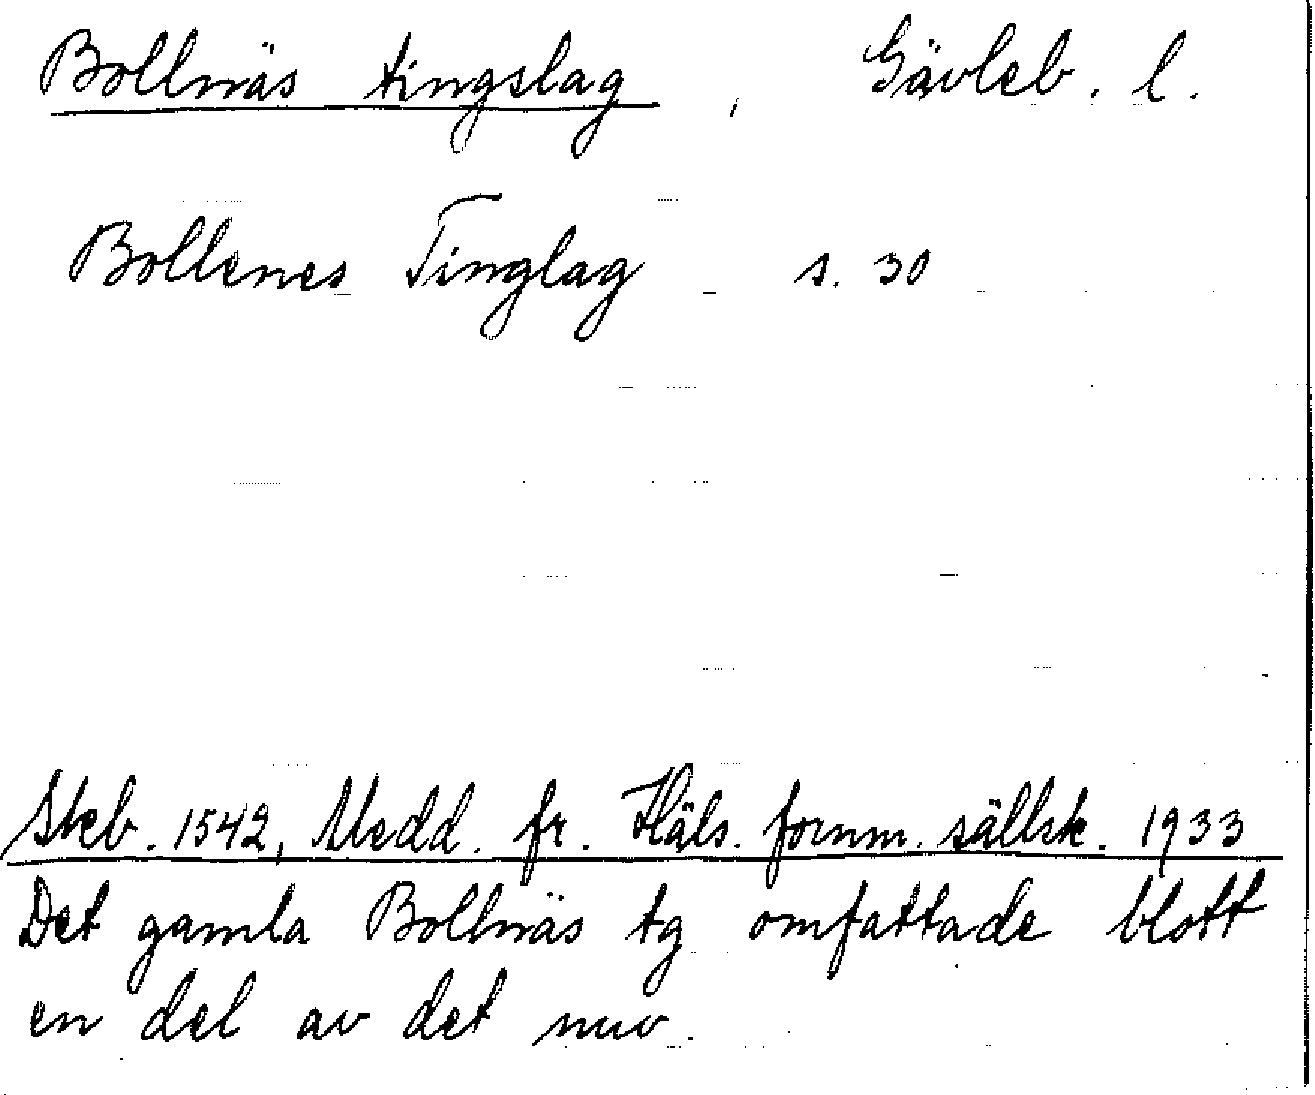 Bollnäs tingslag, Gävleb. l.
Bollenes Tinglag s. 30
Skeb. 1542, Medd. fr. Häls. fornm. sällsk. 1933
Det gamla Bollnäs tg omfattade blott
en del av det nuv.